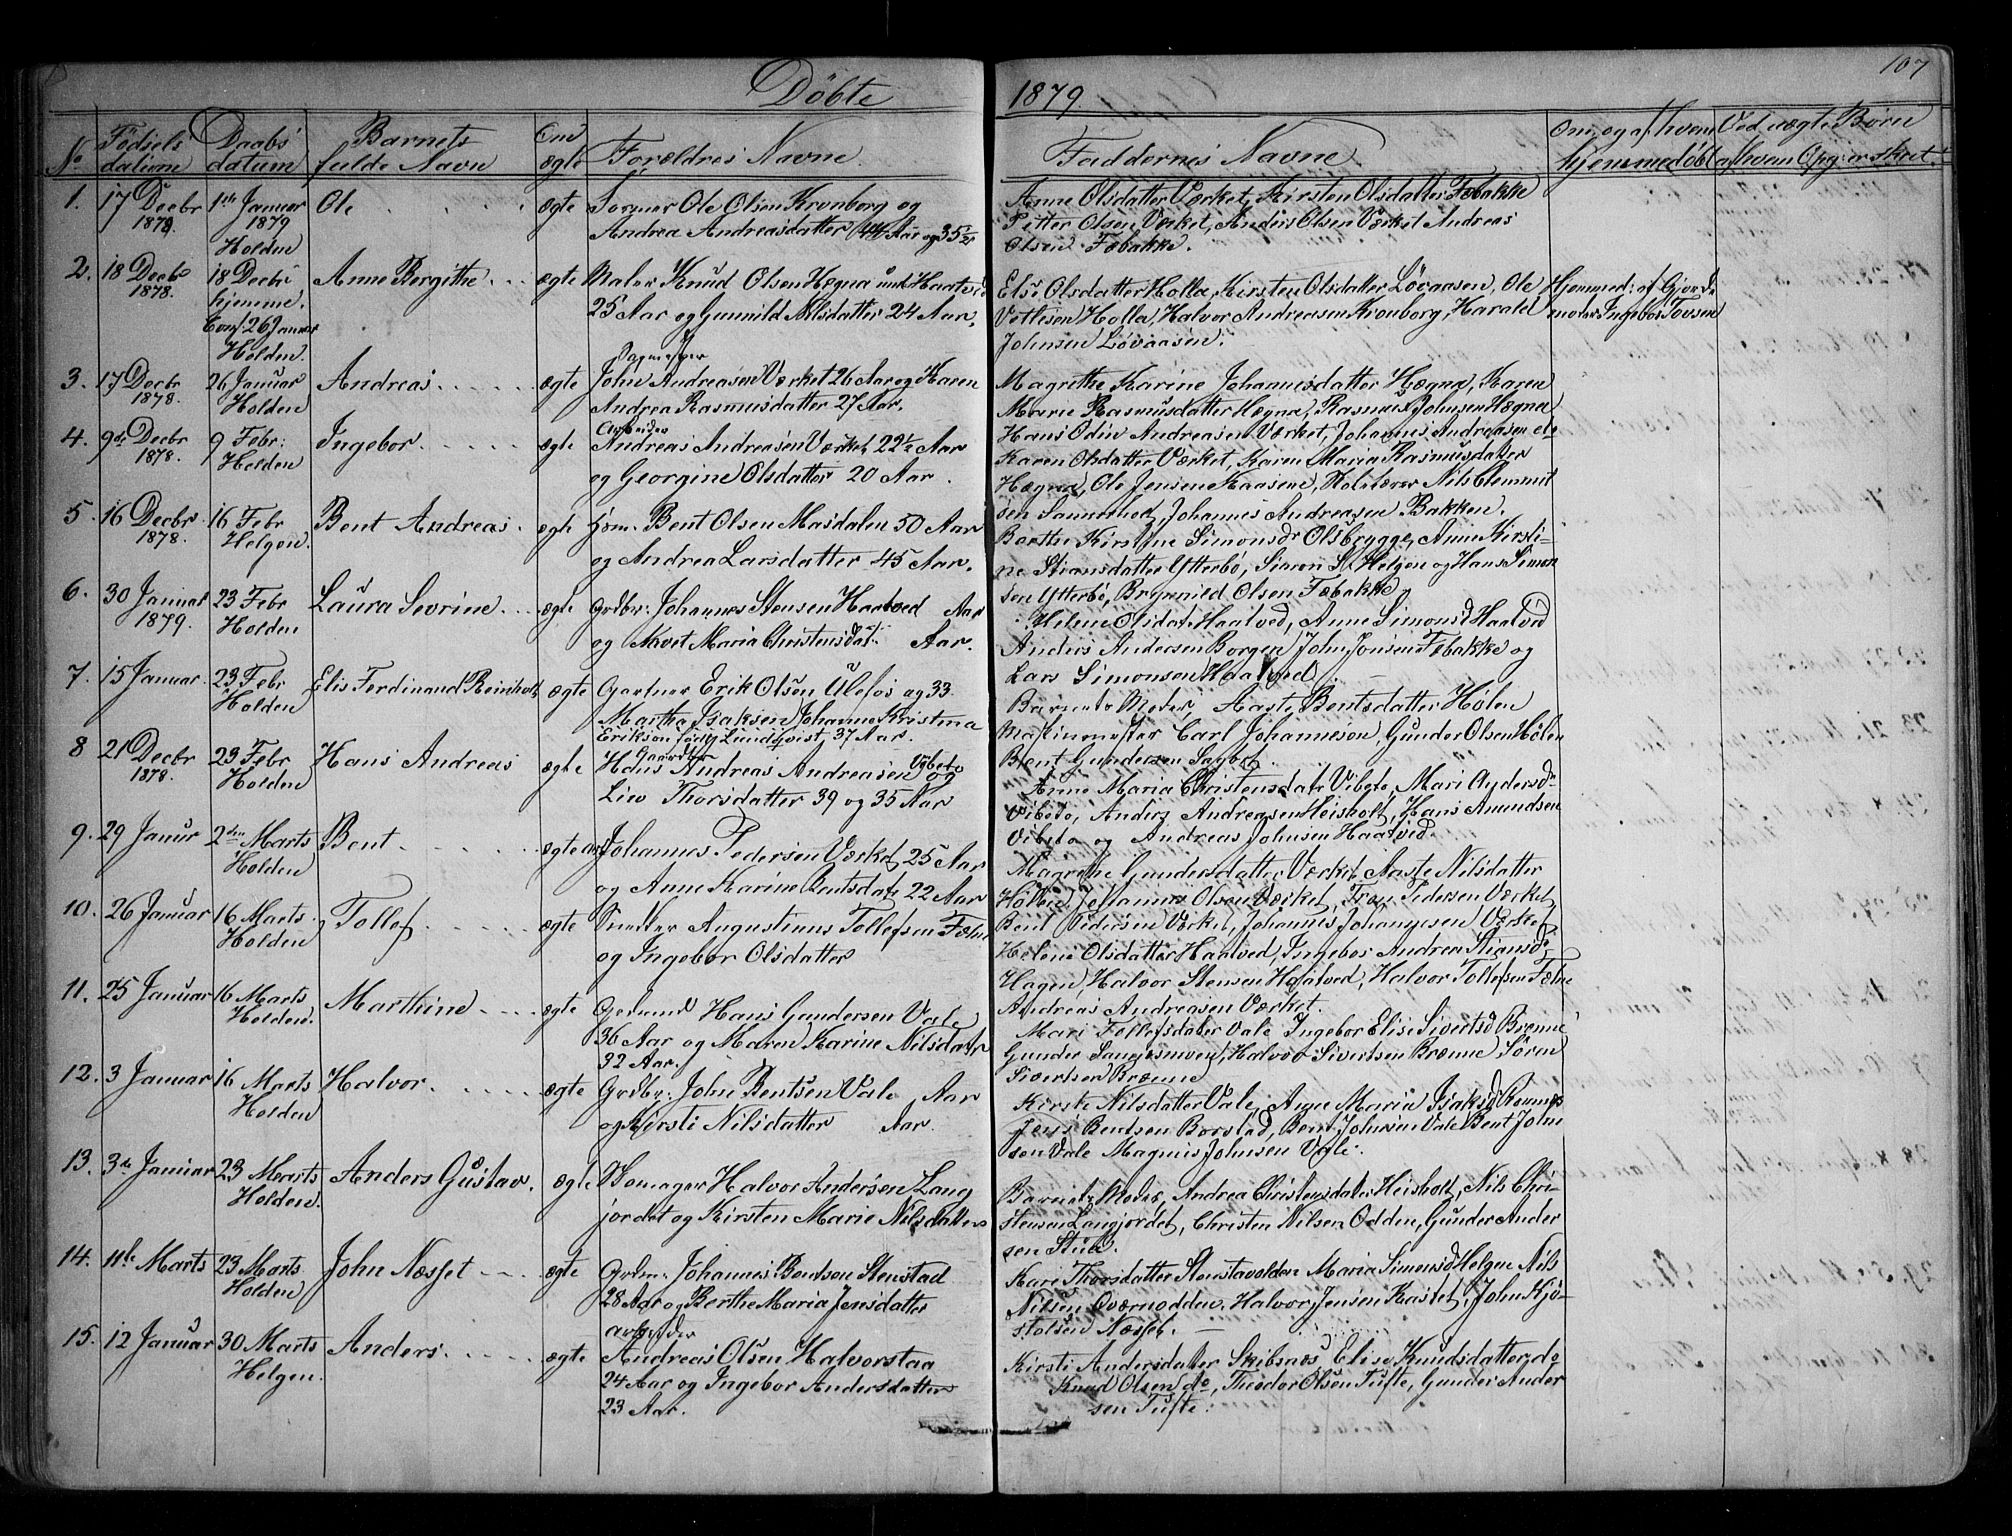 107
Döbte 1879.
No Födsels datum Daabs datum Barnets fulde Navn Om ægte Forældres Navne Faddernes Navne Om, og af hvem hjemmedöbt Ved uægte Börn af hvem Opg: er skeet.
1. 17 Decbr 1879. 1ste Januar 1879 Holden Ole ægte
Ole Olsen Kronborg og
Andrea Andreasdatter 44 Aar og 35 1/2
Anne Olsdatter Værket, Kirsten Olsdatter Fæbakke
Petter Olsen Værket, Anders Olsen Værket Andreas
Olsen Fæbakke.
2. 18 Decbr 1878. 18 Decbr hjemme. Conf. 26 Januar Holden Anne Bergithe ægte
Maler Knud Olsen Hægna
25 Aar og Gunnild Nilsdatter 24 Aar.
Else Olsdatter Holla, Kirsten Olsdatter Lövaasen, Ole
Vetlesen Holla, Halvor Andreasen Kronborg, Harald
Johnsen Lövaasen.
Hjemmed: af Gjord-
moder Ingebor Tovsen
3. 17 Decbr 1878. 26 Januar Holden Andreas ægte
John Andreasen Værket 26 Aar og Karen
Andrea Rasmusdatter 27 Aar.
Magrethe Karine Johannesdatter Hægna, Karen
Marie Rasmusdatter Hægna, Rasmus Johnsen Hægna
Hans Odin Andreasen Værket, Johannes Andreasen do
4. 9de Decbr 1878. 9 Febr: Holden Ingebor ægte
Arbeider
Andreas Andreasen Værket 22 1/2 Aar
og Georgine Olsdatter 20 Aar.
Karen Olsdatter Værket, Karen Maria Rasmusdatter
Hægna, Ole Jensen Kaasene, Nils Clemmit
sen Johannes Andreasen Bakken.
5. 16 Decbr 1878. 16 Febr Helgen. Bent Andreas ægte
Bent Olsen Masdalen 50 Aar
og Andrea Larsdatter 45 Aar.
Berthe Kirstine Simonsdr Olsbrygge, Anne Kirsti-
ne Stiansdatter Ytterbö, Simon S. Helgen og Hans Simon
sen Ytterbö, Brynnild Olsen Fæbakke
6. 30 Januar 1879. 23 Febr Holden Laura Sevrine ægte
Grdbr: Johannes Stensen Haatved Aar
og Maria Christensdat: Aar.
Helene Olsdat. Haatved, Anne Simonsd Haatved
Anders Andersen Borgen John Jonsen Fæbakke og
Lars Simonsen Haatved.
7. 15 Januar. 23 Febr Holden Elis Ferdinand Reinholt ægte
Gartner Erik Olsen Ulefos og 33.
Martha Isaksen Johanne Kristina
Erikson födt Lundqvist 37 Aar.
Barnets Moder, Aaste Bentsdatter Hölen
Maskinmester Carl Johannesen, Gunder Olsen Hölen
Bent Gundersen
8 21 Decbr 1878. 23 Febr Holden Hans Andreas ægte
Hans Andreas Andreasen Vibeto og
Liv Thorsdatter 39 og 35 Aar
Anne Maria Christensdatr Vibeto, Mari Andersdr
Vibeto, Anders Andreasen Heisholt, Hans Amundsen
Vibeto og Andreas Johnsen Haatved.
9. 29 Janur 2den Marts Holden Bent ægte
Johannes Pedersen Værket 25 Aar
og Anne Karine Bentsdatr 22 Aar
Magrethe Gundersdatter Værket Aaste Nilsdatter
Johannes Olsen Værket, Pedersen Værket,
Bent Pedersen Værket, Johannes Johannesen Værket
10. 26 Januar 16 Marts Holden Tollef ægte
Snedker Augustinus Tollefsen Fæhn
og Ingebor Olsdatter
Helene Olsdatter Haatved, Ingebor Andrea Stiansdr
Hagen, Halvor Stensen Haatved, Halvor Tollefsen Fæhn
Andreas Andreasen Værket.
11. 25 Januar 16 Marts Holden. Marthine ægte
Hans Gundersen Vale
36 Aar og Maren Karine Nilsdatr
32 Aar.
Mari Tollefsdater Vale Ingebor Elise Sivertsd Brenne
Gunder Halvor Sivertsen Brænne Sören
Sivertsen Brænne
12. 3 Januar 16 Marts Holden Halvor ægte
Grdbr: John Bentsen Vale Aar
og Kirsti Nilsdatter Aar.
Kirste Nilsdatter Vale, Anne Maria Isaksd
Jens Bentsen Borstad, Bent Johnsen Vale Bent John
sen Vale Magnus Johnsen Vale.
13. 3de Januar 23 Marts Holden. Anders Gustav. ægte
Halvor Andersen Lang
jordet og Kirsten Marie Nilsdatter
Barnets Moder, Andrea Christensdater Heisholt, Nils Chri-
stensen Langjordet, Christen Nilsen Odden, Gunder Ander
sen Stub.
14. 11te Marts 23 Marts Holden John Næsset ægte
Johannes Bentsen Stenstad
28 Aar og Berthe Maria Jensdatter
Kari Thorsdatter Stenstavolden Maria Simonsd Helgen Nils
Nilsen Oværnodden, Halvor Jensen Kastet, John Kjö-
stolsen Næsset.
15. 12 Januar 30 Marts Helgen. Anders ægte
arbeider
Andreas Olsen Halvorstaa
24 Aar og Ingebor Andersdatter
23 Aar.
Kirsti Andersdatter Skibsnæs Elise Knudsdatter do
Knud Olsen do, Theodor Olsen Tufte, Gunder Ander
sen Tufte.